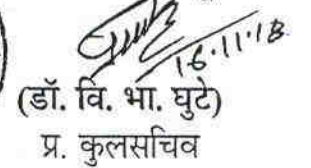 16.11.18
(डॉ. वि. भा. घुटे)
प्र. कुलसचिव